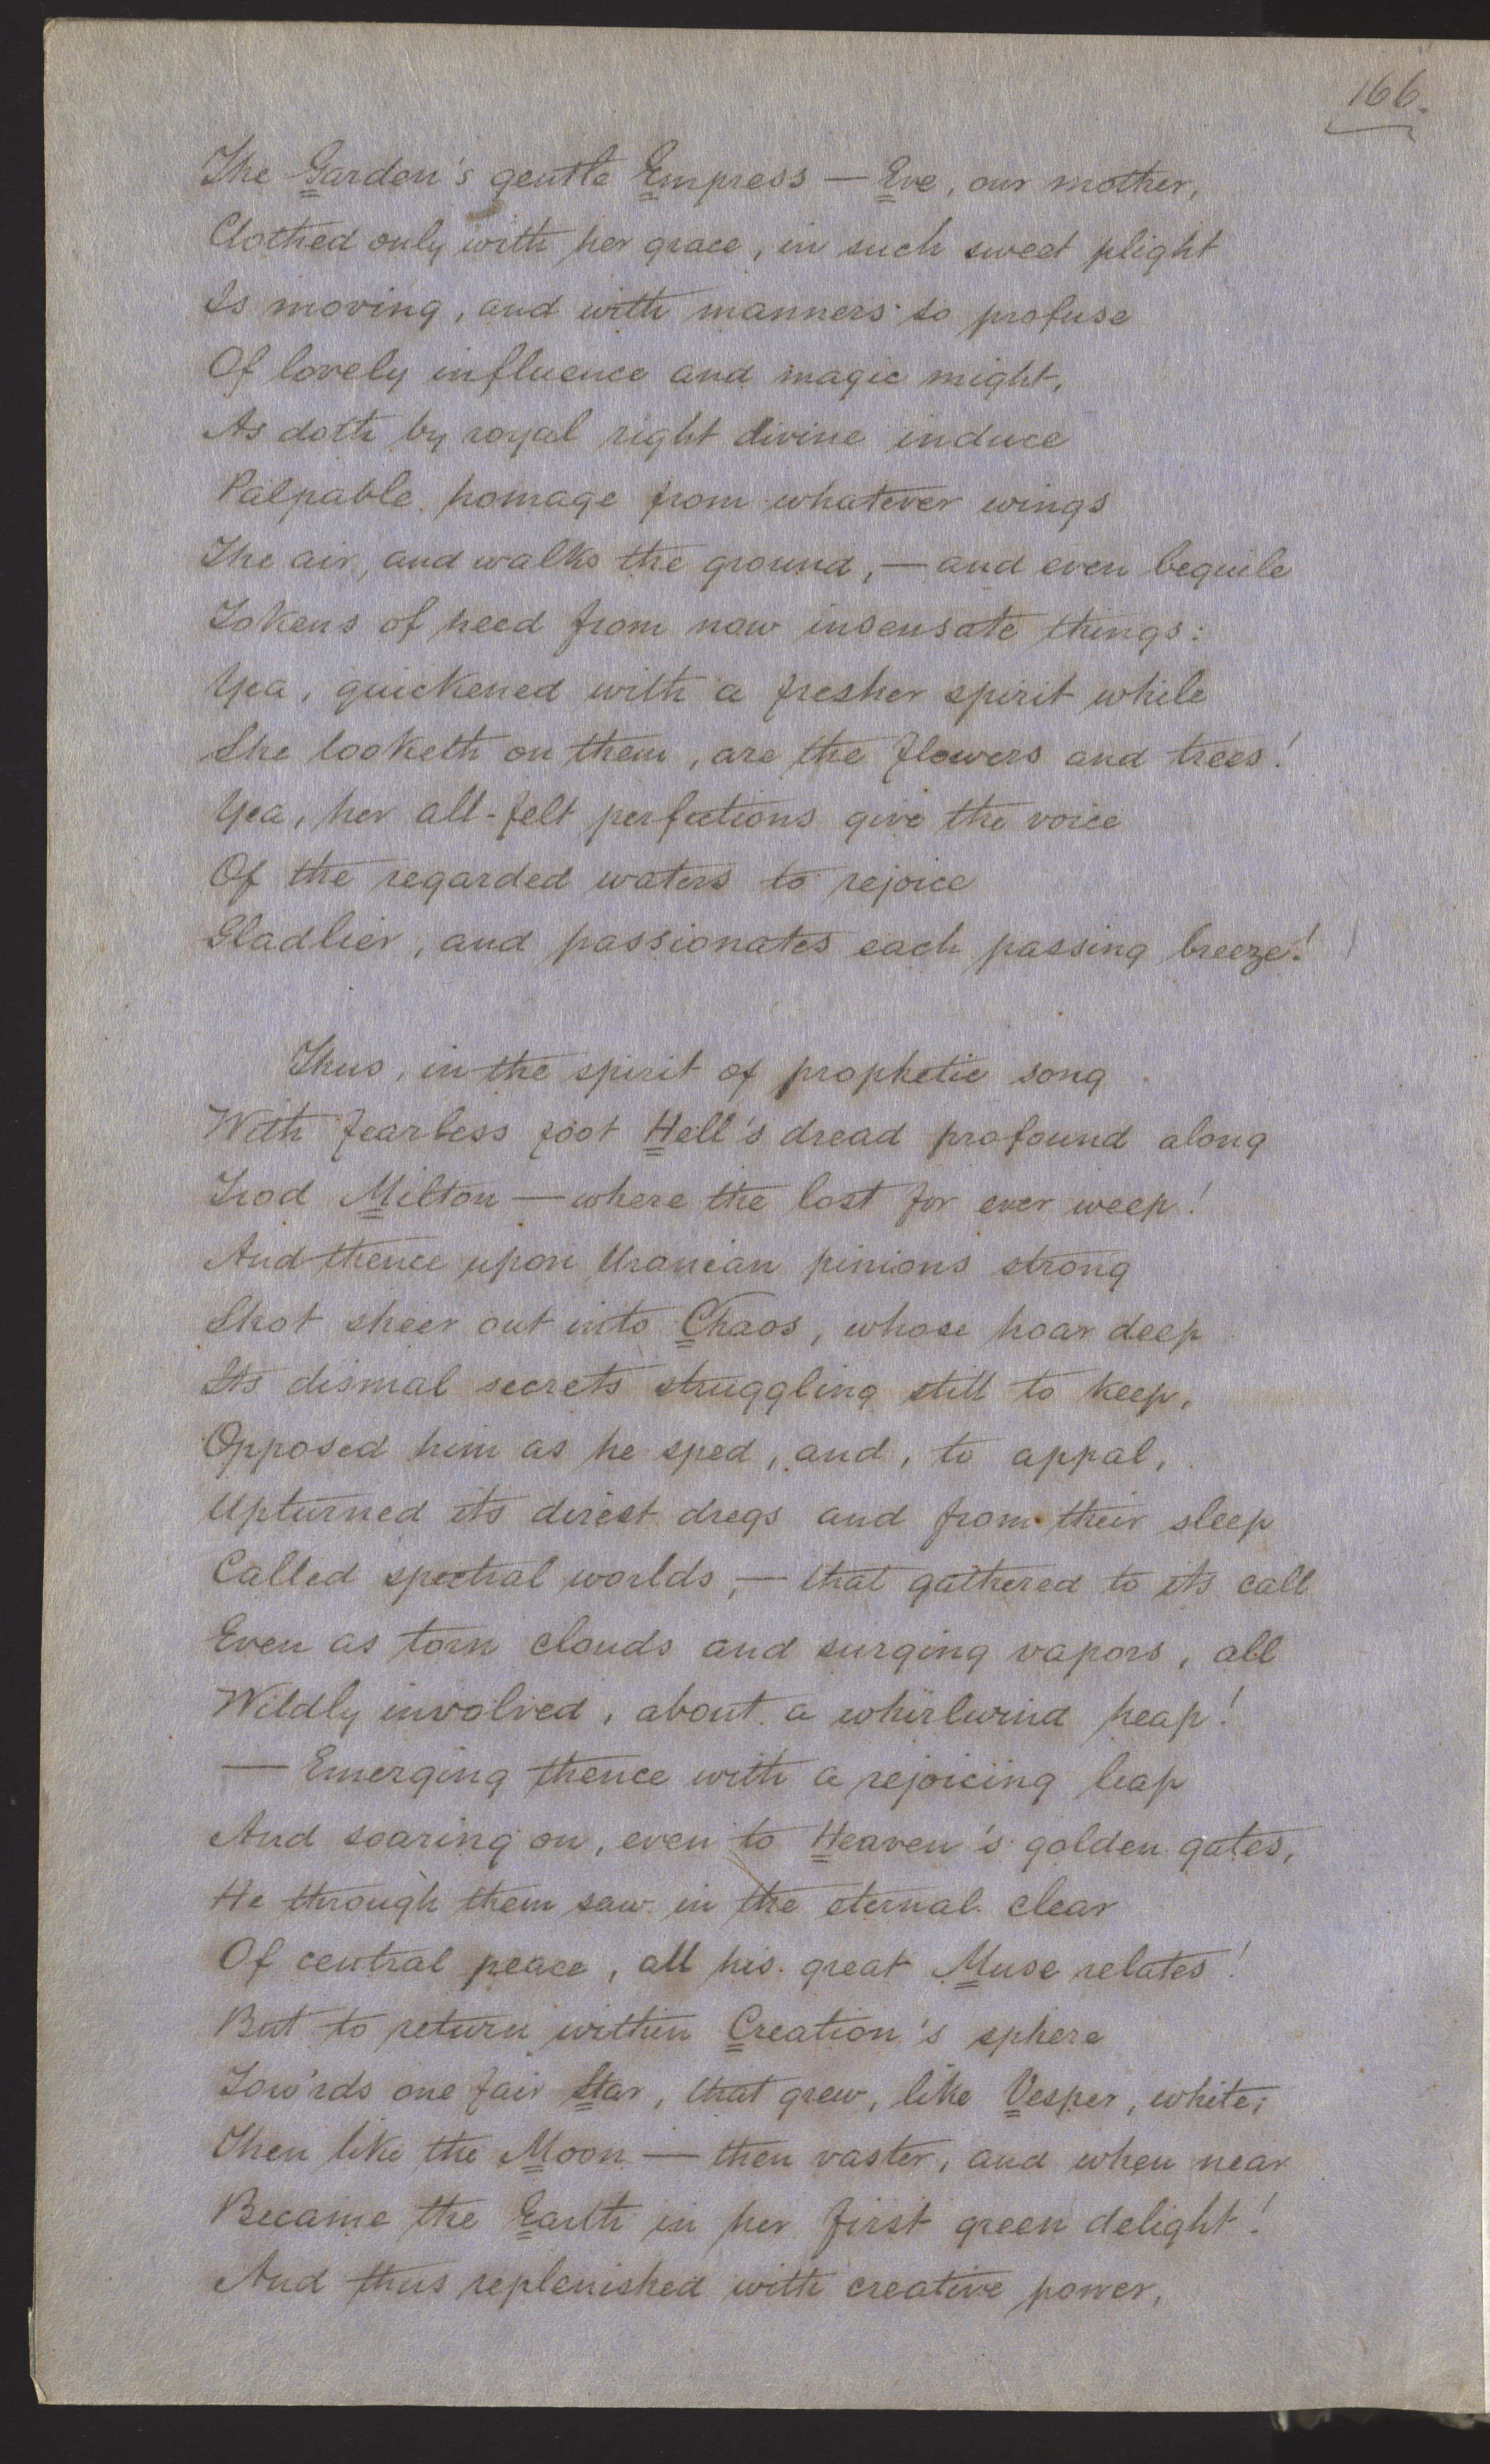 166.
The Garden's gentle Empress — Eve, our mother,
Clothed only with her grace, in such sweet plight
Is moving, and with manners so profuse
Of lovely influence and magic might,
As doth by royal right divine induce
Palpable homage from whatever wings
The air, and walks the ground, — and even beguile
Tokens of heed from now insensate things:
Yea, quickened with a fresher spirit while
She looketh on them, are the flowers and trees!
Yea, her all-felt perfections give the voice
Of the regarded waters to rejoice
Gladlier, and passionates each passing breeze!
Thus, in the spirit of prophetic song
With fearless foot Hell's dread profound along
Trod Milton — where the lost for ever weep!
And thence upon Uranian pinions strong
Shot sheer out into Chaos, whose hoar deep
Its dismal secrets struggling still to keep,
Opposed him as he sped, and, to appal,
Upturned its direst dregs and from their sleep
Called spectral worlds, — that gathered to its call
Even as torn clouds and surging vapors, all
Wildly involved, about a whirlwind heap!
— Emerging thence with a rejoicing leap
And soaring on, even to Heaven's golden gates,
He through them saw in the eternal clear
Of central peace, all his great Muse relates!
But to return within Creation's sphere
Tow'rds one fair Star, that grew, like Vesper, white;
Then like the Moon — then vaster, and when near
Became the Earth in her first green delight!
And thus replenished with creative power,